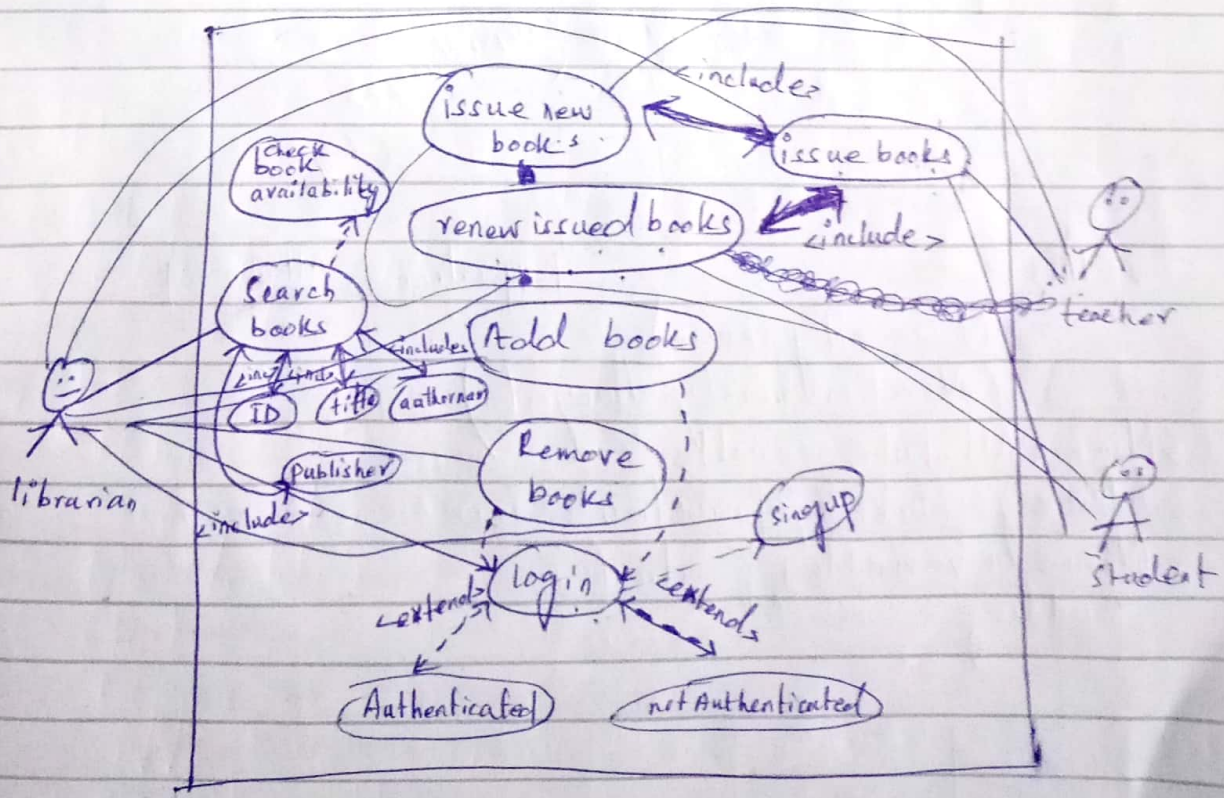 <includes
issue new
book.s
issue books
check
book
availability
renew issued books
<include>
teacher
Search
books
Add books
<includes
ID
title
publisher
Remove
books
librarian
<include>
singup
login
student
<extends>
<extends
Authenticated
not Authenticated